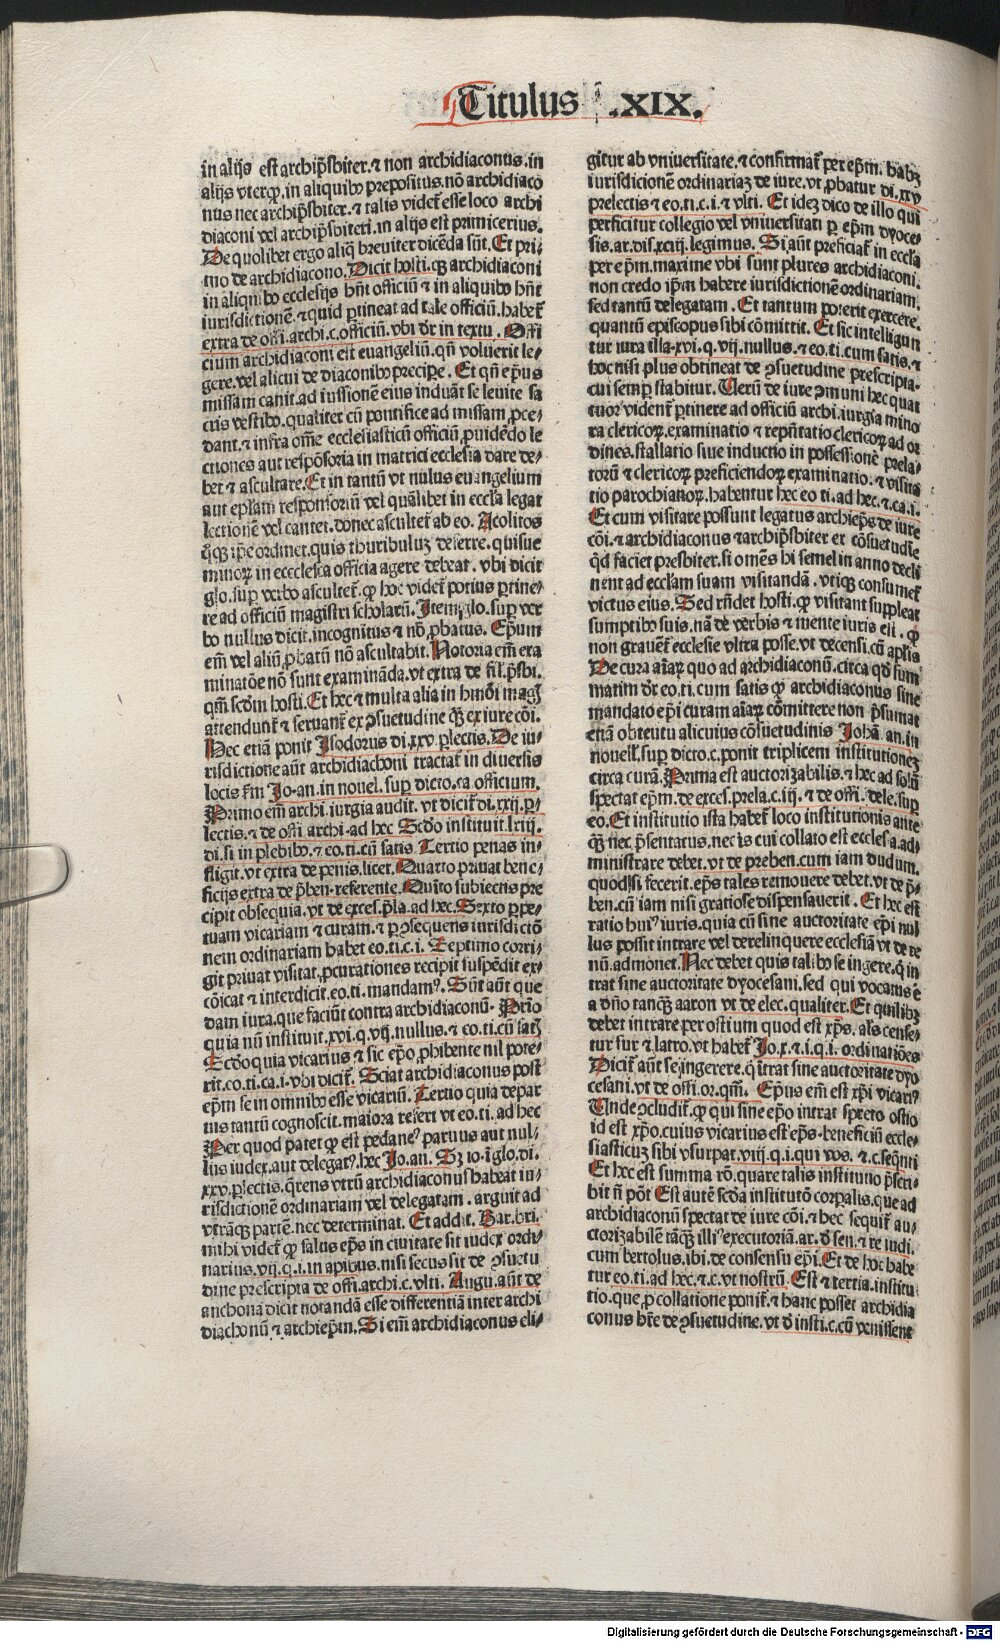 Titulus .XIX.
in alijs est archip̃sbiter.⁊ non archidiaconus.in
alijs vterqꝫ.in aliquibꝰ prepositus.nō archidiaco
nus nec archip̃sbiter.⁊ talis videt̃ esse loco archi
diaconi vel archip̃sbiteri.in alijs est primicerius.
De quolibet ergo aliq̃ breuiter dicēda sūt. Et pri⸗
mo de archidiacono. Dicit hosti.qꝫ archidiaconi
in aliquibꝰ ecclesijs hñt officiū ⁊ in aliquibꝰ hñt
iurisdictionē.⁊ quid ꝑtineat ad tale officiū.habet̃
extra de offi.archi.c.officiū.vbi dr̃ in textu. Offi
cium archidiaconi est euangeliū.qñ voluerit le⸗
gere.vel alicui de diaconibꝰ precipe. Et qñ ep̃us
missam canit.ad iussionē eius induāt se leuite sa
cris vestibꝰ.qualiter cū pontifice ad missam ꝓce⸗
dant.⁊ infra om̃e ecclesiasticū officiū ꝓuidēdo le
ctiones aut respōsoria in matrici ecclesia dare de⸗
bet ⁊ ascultare. Et in tantū vt nulus euangelium
aut ep̃lam responsoriū vel quālibet in eccl̃a legat
lectionē vel cantet.donec ascultet̃ ab eo. Acolitos
q̃qꝫ ip̃e ordinet.quis thuribuluꝫ deferre.quisue
minorꝫ in ecccleica officia agere debeat. vbi dicit
glo.suꝑ verbo ascultet̃.qꝙ hoc videt̃ potius ꝑtine⸗
re ad officiū magistri scholarū. Item glo.suꝑ ver
bo nullus dicit.incognitus ⁊ nō ꝓbatus. Ep̃um
em̃ vel aliū ꝓbatū nō ascultabit. Notoria em̃ exa
minatōe nō sunt examināda.vt extra de fil.p̃sbi.
qm̃ scd̃m hosti. Et hec ⁊ multa alia in hm̃ōi magꝭ
attendunt̃ ⁊ seruant̃ ex ꝯsuetudine qꝫ̃ ex iure cōi.
Hec etiā ponit Isodorus di.xxv ꝑlectis. De iu⸗
risdictione aūt archidiachoni tractat̃ in diuersis
locis s̃m Jo.an.in nouel.suꝑ dicto.ca officium.
Primo em̃ archi.iurgia audit. vt dicit̃ di.xxij.ꝑ⸗
lectis.⁊ de offi archi.ad hec Scd̃o instituit.lxiij.
di.si in plebibꝰ.⁊ eo.ti.cū satis Tertio penas in⸗
fligit.vt extra de penis.licet. Quarto priuat bene⸗
ficijs extra de p̃ben.referente. Quīto subiectis pre
cipit obsequia.vt de exces.p̃la.ad hec. Sexto ꝑpe⸗
tuam vicariam ⁊ curam.⁊ ꝑ ꝯsequens iurisdictō
nem ordinariam habet eo.ti.c.i. Septimo corri⸗
git priuat visitat ꝓcurationes recipit suspēdit ex⸗
cōicat ⁊ interdicit.eo.ti.mandamꝰ. Sūt aūt que
dam iura.que faciūt contra archidiaconū. Prio
quia nū instituit.xvi.q.vij.nullus.⁊ eo.ti.cū satꝭ
Scd̃o quia vicarius ⁊ sic ep̃o ꝓhibente nil pote⸗
rit.eo.ti.ca.i.vbi dicit̃. Sciat archidiaconus post
ep̃m se in omnibꝰ esse vicariū. Tertio quia de par
uis tantū cognoscit.maiora refert vt eo.ti.ad hec
Per quod patet qꝙ est pedaneꝰ paruus aut nul⸗
lus iudex.aut delegatꝰ.hec Jo.an. Sꝫ io.ī glo.di.
xxv.ꝑlectis.q̃rens vtrū archidiaconus habeat iu⸗
risdictionē ordinariam vel delegatam. arguit ad
vtrāqꝫ partē.nec determinat. Et addit. Bar.bri.
mihi videt̃ qꝙ solus ep̃s in ciuitate sit iudex ordi⸗
narius.vij.q.i.in apibus.nisi secus sit de ꝯsuetu
dine prescripta de offi.archi.c.vlti. Augu.aūt de
anchona dicit notandā esse differentiā inter archi
diachonū ⁊ archiep̃m. Si em̃ archidiaconus eli⸗
gitur ab vniuersitate.⁊ confirmat̃ per ep̃m. habꝫ
iurisdictionē ordinariaꝫ de iure.vt ꝓbatur di.xxv
prelectis ⁊ eo.ti.c.i.⁊ vlti. Et ideꝫ dico de illo qui
perficitur collegio vel vniuersitati ꝑ ep̃m dyoce⸗
sis.ar.dis.xciij.legimus. Si aūt preficiat̃ in eccl̃a
per ep̃m.maxime vbi sunt plures archidiaconi.
non credo ip̃m habere iurisdictionē ordinariam.
sed tantū delegatam. Et tantum poterit exercere.
quantū episcopus sibi cōmittit. Et sic intelligun
tur iura illa.xvi.q.vij.nullus.⁊ eo.ti.cum satis.⁊
hoc nisi plus obtineat de ꝯsuetudine prescripta.
cui semꝑ stabitur. Uerū de iure ꝯmuni hec quat
tuor vident̃ ꝑtinere ad officiū archi.iurgia mino
ra clericorꝫ.examinatio ⁊ rep̃ntatio clericorꝫ ad or
dines.stallatio siue inductio in possessionē prela⸗
torū ⁊ clericorꝫ preficiendorꝫ examinatio.⁊ visita
tio parochianorꝫ.habentur hec eo ti.ad hec.⁊ ca.i.
Et cum visitare possunt legatus archiep̃s de iure
cōi.⁊ archidiaconus ⁊ archip̃sbiter ex cōsuetudīe
q̃d faciet presbiter.si omēs hi semel in anno decli
nent ad eccl̃am suam visitandā. vtiqꝫ consumet̃
victus eius. Sed rñdet hosti.qꝙ visitant suppleat
sumptibꝰ suis.nā de verbis ⁊ mente iuris est. qꝙ
non grauet̃ ecclesie vltra posse.vt de censi.cū apl̃is
De cura aīarꝫ quo ad archidiaconū.circa qd̃ sum
matim dr̃ eo.ti.cum satis qꝙ archidiaconus sine
mandato ep̃i curam aīarꝫ cōmittere non p̃sumat
etiā obtentu alicuius cōsuetudinis Johā.an.in
nouell.suꝑ dicto.c.ponit triplicem institutioneꝫ
circa curā. Prima est auctorizabilis.⁊ hec ad solū
spectat ep̃m.de exces.prela.c.iij.⁊ de offi.dele.suꝑ
eo. Et institutio ista habet̃ loco institutionis ante
qꝫ̃ nec p̃sentatus.nec is cui collato est ecclesa.ad⸗
ministrare debet.vt de preben.cum iam dudum.
quod si fecerit.ep̃s tales remouere debet.vt de p̃⸗
ben.cū iam nisi gratiose dispensauerit. Et hec est
ratio huiꝰ iuris.quia cū sine auctoritate ep̃i nul
lus possit intrare vel derelinquere ecclesiā vt de re
nū.admonet. Nec debet quis talibꝰ se ingere.q̃ in
trat sine auctoritate dyocesani.sed qui vocatus ē
a dño tanqꝫ̃ aaron vt de elec.qualiter. Et quilibꝫ
debet intrare per ostium quod est xp̃s. als̃ cense⸗
tur fur ⁊ latro.vt habet̃ Jo.x.⁊ i.q.i. ordinatiōes
Dicit̃ aūt se ingerere.q̃ ītrat sine auctoritate dyo
cesani.vt de offi.or.qm̃. Ep̃us em̃ est xp̃i vicariꝰ
Unde ꝯcludit̃.qꝙ qui sine ep̃o intrat spreto ostio
id est xp̃o.cuius vicarius est ep̃s.beneficiū eccle⸗
siasticuꝫ sibi vsurpat.viij.q.i.qui vos.⁊ c.seq̃nti
Et hec est summa rō.quare talis institutio p̃scri⸗
bit ñ pōt Est autē scd̃a institutō corꝑalis.que ad
archidiaconū spectat de iure cōi.⁊ hec sequit̃ au⸗
ctorizabilē tāqꝫ̃ illiꝰ executoriā.ar.d̃ sen.⁊ re iudi.
cum bertolus.ibi.de consensu ep̃i. Et de hoc habe
tur eo.ti.ad hec.⁊.c.vt nostrū. Est ⁊ tertia.institu
tio.que ꝓ collatione ponit̃.⁊ hanc posset archidia
conus hr̃e de ꝯsuetudine.vt d̃ insti.c.cū venissent
Digitalisierung gefördert durch die Deutsche Forschungsgemeinschaft - DFG